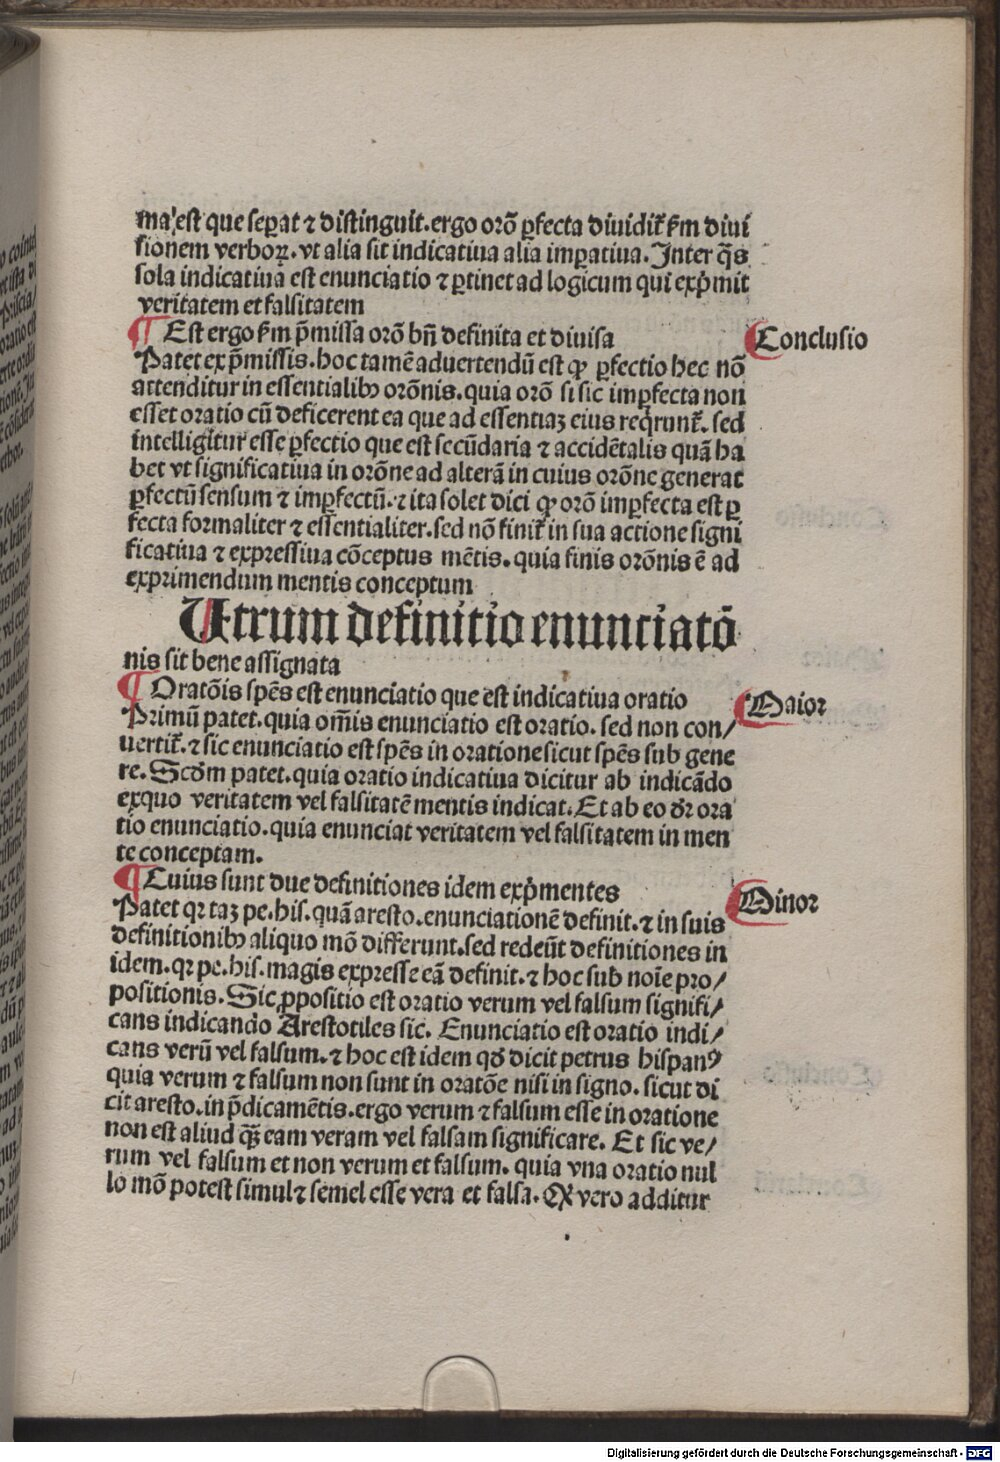 ma'est que seꝑat ⁊ distinguit.ergo orō ꝑfecta diuidit᷑ ẜm diui
sionem verboꝝ.vt alia sit indicatiua alia imꝑatiua.Inter q̄s
sola indicatiua est enunciatio ⁊ ꝑtinet ad logicum qui exp̄mit
veritatem et falsitatem
¶ Est ergo ẜm p̄missa orō bn̄ definita et diuisa
Conclusio
Patet ex p̄missis.hoc tamē aduertendū est ꝙ ꝑfectio hec nō
attenditur in essentialibꝰ orōnis.quia orō si sic imꝑfecta non
esset oratio cū deficerent ea que ad essentiaꝫ eius reqͥrunt᷑. sed
intelligitur esse ꝑfectio que est secūdaria ⁊ accidētalis quā ha
bet vt significatiua in orōne ad alterā in cuius orōne generat
ꝑfectū sensum ⁊ imꝑfectū.⁊ ita solet dici ꝙ orō imꝑfecta est ꝑ
fecta formaliter ⁊ essentialiter.sed nō finit᷑ in sua actione signi
ficatiua ⁊ expressiua cōceptus mētis.quia finis orōnis ē ad
exprimendum mentis conceptum
Utrum definitio enunciatō
nis sit bene assignata
¶ Oratōis spēs est enunciatio que est indicatiua oratio
Maior
Primū patet.quia om̄is enunciatio est oratio.sed non con/
uertit᷑.⁊ sic enunciatio est spēs in oratione sicut spēs sub gene
re.Scd̄m patet.quia oratio indicatiua dicitur ab indicādo
exquo veritatem vel falsitatē mentis indicat.Et ab eo dr̄ ora
tio enunciatio.quia enunciat veritatem vel falsitatem in men
te conceptam.
¶ Cuius sunt due definitiones idem exp̄mentes
Minor
Patet qꝛ taꝫ pe.his.quā aresto.enunciationē definit.⁊ in suis
definitionibꝰ aliquo mō differunt.sed redeūt definitiones in
idem.qꝛ pe.his.magis expresse eā definit.⁊ hoc sub noīe pro/
positionis.Sic ꝓpositio est oratio verum vel falsum signifi/
cans indicando Arestotiles sic. Enunciatio est oratio indi/
cans verū vel falsum.⁊ hoc est idem qd̄ dicit petrus hispanꝰ
quia verum ⁊ falsum non sunt in oratōe nisi in signo.sicut di
cit aresto.in p̄dicamētis.ergo verum ⁊ falsum esse in oratione
non est aliud qꝫ̄ eam veram vel falsam significare. Et sic ve/
rum vel falsum et non verum et falsum. quia vna oratio nul
lo mō potest simul⁊ semel esse vera et falsa.Qꝛ vero additur
Digitalisierung gefördert durch die Deutsche Forschungsgemeinschaft - DFG